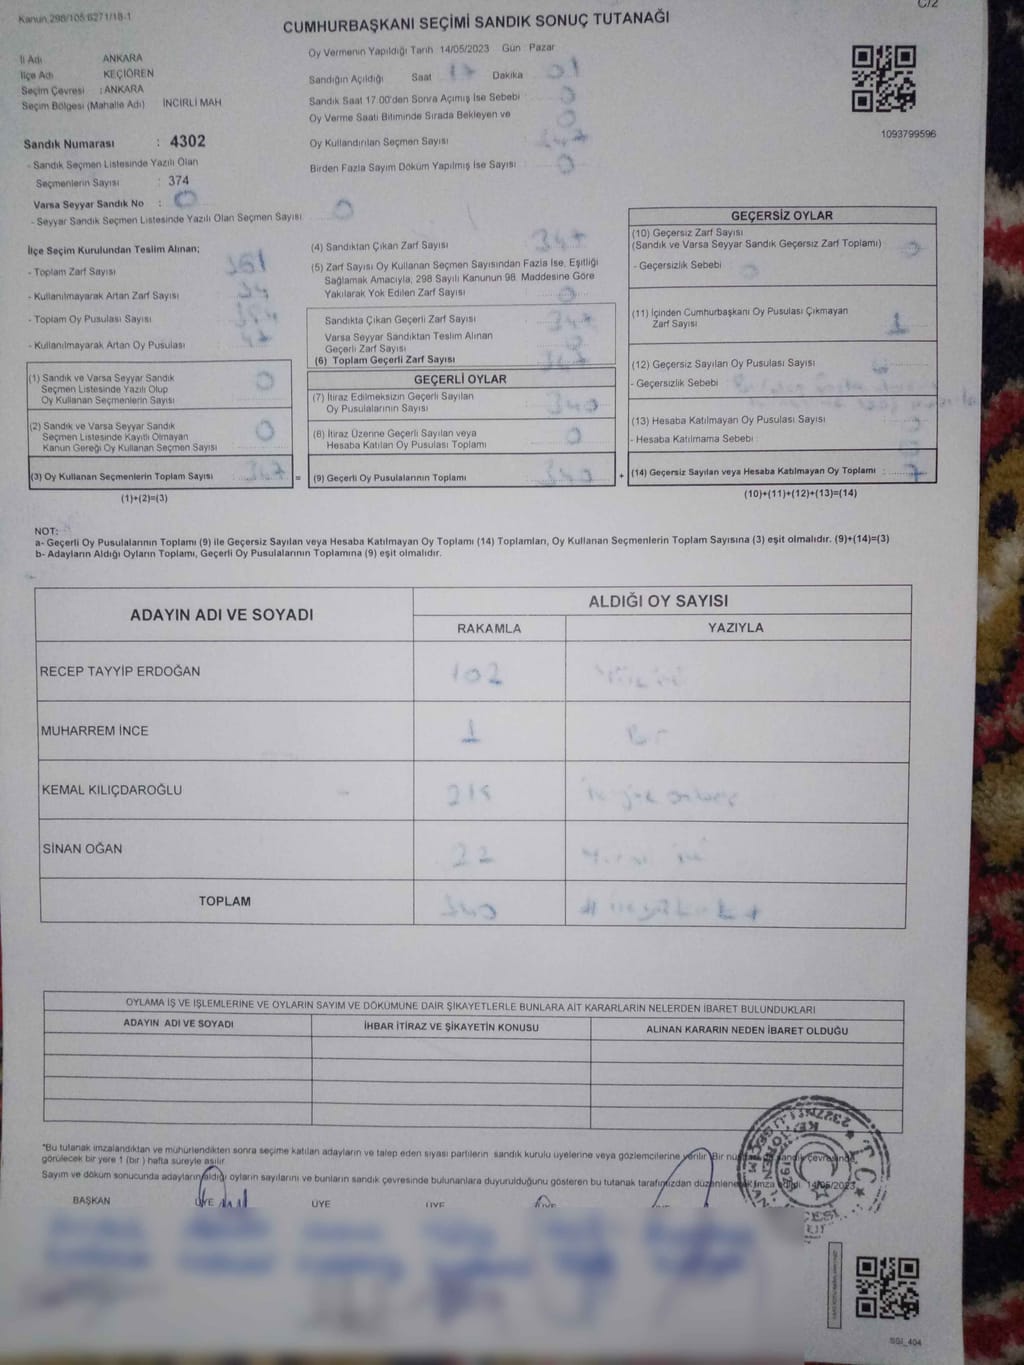 Kanun 298/105 6271/18-1
C/2
CUMHURBAŞKANI SEÇİMİ SANDIK SONUÇ TUTANAĞI
İl Adı ANKARA
İlçe Adı KEÇİÖREN
Seçim Çevresi : ANKARA
Seçim Bölgesi (Mahalle Adı) İNCİRLİ MAH
Sandık Numarası : 4302
- Sandık Seçmen Listesinde Yazılı Olan
Seçmenlerin Sayısı : 374
Varsa Seyyar Sandık No : 0
- Seyyar Sandık Seçmen Listesinde Yazılı Olan Seçmen Sayısı 0
Oy Vermenin Yapıldığı Tarih 14/05/2023 Gün Pazar
Sandığın Açıldığı Saat 17 Dakika 01
Sandık Saat 17.00'den Sonra Açımış İse Sebebi 0
Oy Verme Saati Bitiminde Sırada Bekleyen ve 0
Oy Kullandırılan Seçmen Sayısı 347
Birden Fazla Sayım Döküm Yapılmış İse Sayısı 0
1093799596
İlçe Seçim Kurulundan Teslim Alınan;
- Toplam Zarf Sayısı
- Kullanılmayarak Artan Zarf Sayısı
- Toplam Oy Pusulası Sayısı
- Kullanılmayarak Artan Oy Pusulası
(1) Sandık ve Varsa Seyyar Sandık
Seçmen Listesinde Yazılı Olup
Oy Kullanan Seçmenlerin Sayısı 0
(2) Sandık ve Varsa Seyyar Sandık
Seçmen Listesinde Kayıtlı Olmayan
Kanun Gereği Oy Kullanan Seçmen Sayısı 0
(3) Oy Kullanan Seçmenlerin Toplam Sayısı 347 =
(1)+(2)=(3)
(4) Sandıktan Çıkan Zarf Sayısı 347
(5) Zarf Sayısı Oy Kullanan Seçmen Sayısından Fazla İse, Eşitliği
Sağlamak Amacıyla, 298 Sayılı Kanunun 98. Maddesine Göre
Yakılarak Yok Edilen Zarf Sayısı 0
Sandıkta Çıkan Geçerli Zarf Sayısı 347
Varsa Seyyar Sandıktan Teslim Alınan
Geçerli Zarf Sayısı
(6) Toplam Geçerli Zarf Sayısı 347
GEÇERLİ OYLAR
(7) İtiraz Edilmeksizin Geçerli Sayılan
Oy Pusulalarının Sayısı 340
(8) İtiraz Üzerine Geçerli Sayılan veya
Hesaba Katılan Oy Pusulası Toplamı 0
(9) Geçerli Oy Pusulalarının Toplamı 340 +
GEÇERSİZ OYLAR
(10) Geçersiz Zarf Sayısı
(Sandık ve Varsa Seyyar Sandık Geçersiz Zarf Toplamı) 0
- Geçersizlik Sebebi 0
(11) İçinden Cumhurbaşkanı Oy Pusulası Çıkmayan
Zarf Sayısı 1
(12) Geçersiz Sayılan Oy Pusulası Sayısı
- Geçersizlik Sebebi
(13) Hesaba Katılmayan Oy Pusulası Sayısı
- Hesaba Katılmama Sebebi
(14) Geçersiz Sayılan veya Hesaba Katılmayan Oy Toplamı : 7
(10)+(11)+(12)+(13)=(14)
NOT:
a- Geçerli Oy Pusulalarının Toplamı (9) ile Geçersiz Sayılan veya Hesaba Katılmayan Oy Toplamı (14) Toplamları, Oy Kullanan Seçmenlerin Toplam Sayısına (3) eşit olmalıdır. (9)+(14)=(3)
b- Adayların Aldığı Oyların Toplamı, Geçerli Oy Pusulalarının Toplamına (9) eşit olmalıdır.
ADAYIN ADI VE SOYADI ALDIĞI OY SAYISI
RAKAMLA YAZIYLA
RECEP TAYYİP ERDOĞAN 102
MUHARREM İNCE 1 Bir
KEMAL KILIÇDAROĞLU 215
SİNAN OĞAN 22
TOPLAM 340
OYLAMA İŞ VE İŞLEMLERİNE VE OYLARIN SAYIM VE DÖKÜMÜNE DAİR ŞİKAYETLERLE BUNLARA AİT KARARLARIN NELERDEN İBARET BULUNDUKLARI
ADAYIN ADI VE SOYADI İHBAR İTİRAZ VE ŞİKAYETİN KONUSU ALINAN KARARIN NEDEN İBARET OLDUĞU
*Bu tutanak imzalandıktan ve mühürlendikten sonra seçime katılan adayların ve talep eden siyasi partilerin sandık kurulu üyelerine veya gözlemcilerine verilir. Bir sandık çevresinde
görülecek bir yere 1 (bir) hafta süreyle asılır.
Sayım ve döküm sonucunda adayların aldığı oyların sayılarını ve bunların sandık çevresinde bulunanlara duyurulduğunu gösteren bu tutanak tarafımızdan düzenlenerek imza edildi. 14/05/2023
BAŞKAN ÜYE ÜYE ÜYE ÜYE
T.C.